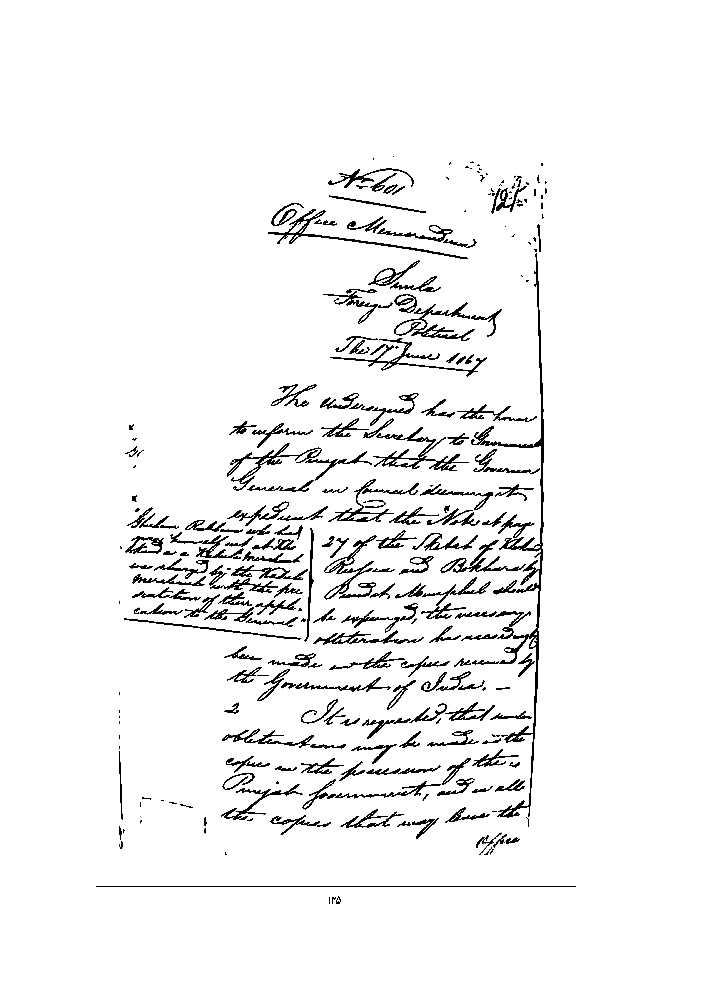 No 601
121
Office Memorandum
Simla
Foreign Department
Political
The 17th June 1867
The Undersigned has the honor
to inform the Secretary to Government
of the Punjab that the Governor
General in Council deeming it
expedient that the "Note at page
27 of the Sketch of
Russia and Bokhara by
Pundit Munphul should
be expunged, the necessary
obliteration has accordingly
been made in the copies received by
the Government of India. –
who had
himself out at
as a merchant
was charged by the
merchants with the
of their appli-
cation to the General"
2 It is requested, that similar
obliterations may be made in the
copies in the possession of the
Punjab Government, and in all
the copies that may leave the
Office
۱۳۵